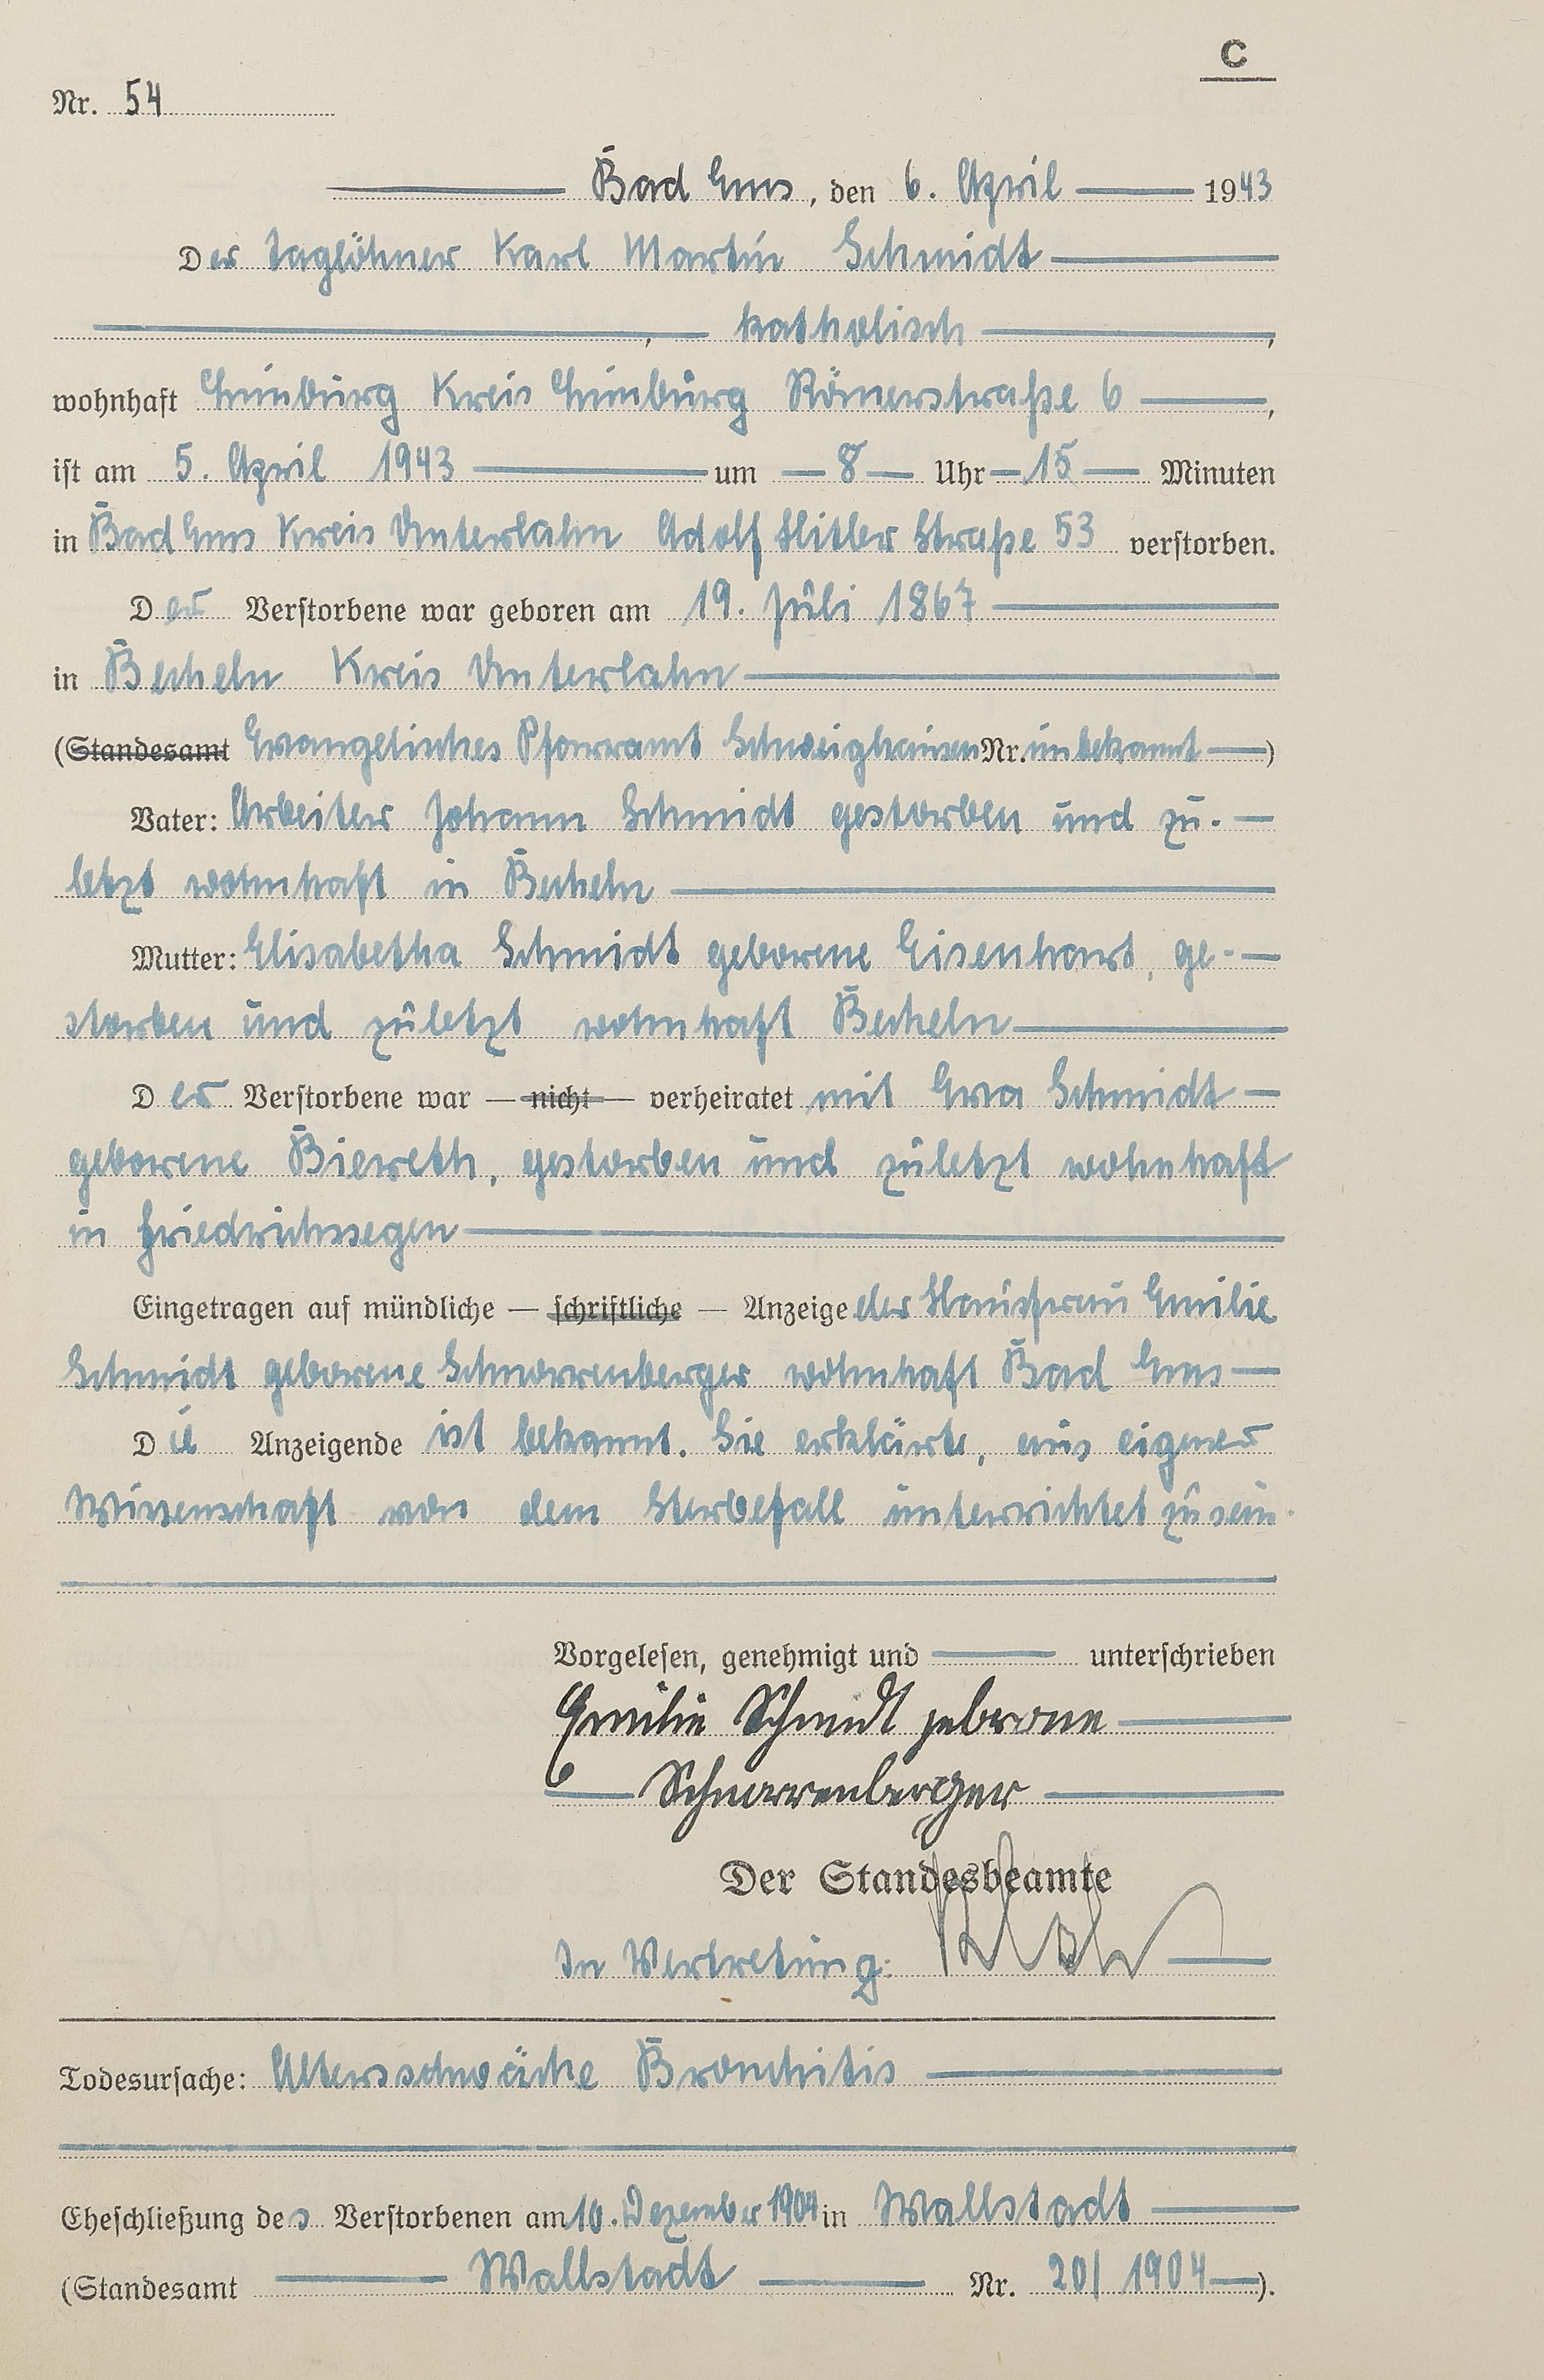 C
Nr. 54
Bad Ems, den 6. April 1943
Der Taglöhner Karl Martin Schmidt
, katholisch ,
wohnhaft Limburg Kreis Limburg Römerstraße 6 ,
ist am 5. April 1943 um 8 Uhr 15 Minuten
in Bad Ems Kreis Unterlahn Adolf Hitler Straße 53 verstorben.
Der Verstorbene war geboren am 19. Juli 1867
in Becheln Kreis Unterlahn
(Standesamt Evangelisches Pfarramt Schweighausen Nr. unbekannt )
Vater: Arbeiter Johann Schmidt gestorben und zu-
letzt wohnhaft in Becheln
Mutter: Elisabetha Schmidt geborene Eisenhart, ge-
storben und zuletzt wohnhaft Becheln
Der Verstorbene war — nicht — verheiratet mit Eva Schmidt
geborene Biereth, gestorben und zuletzt wohnhaft
in Friedrichssegen
Eingetragen auf mündliche — schriftliche — Anzeige der Hausfrau Emilie
Schmidt geborene Schnorrenberger wohnhaft Bad Ems
Die Anzeigende ist bekannt. Sie erklärte, aus eigener
Wissenschaft von dem Sterbefall unterrichtet zu sein.
Vorgelesen, genehmigt und unterschrieben
Emilie Schmidt geborene
Schnorrenberger
Der Standesbeamte
In Vertretung:
Todesursache: Altersschwäche Bronchitis
Eheschließung des Verstorbenen am 10. Dezember 1904 in Wallstadt
(Standesamt Wallstadt Nr. 20/1904 ).